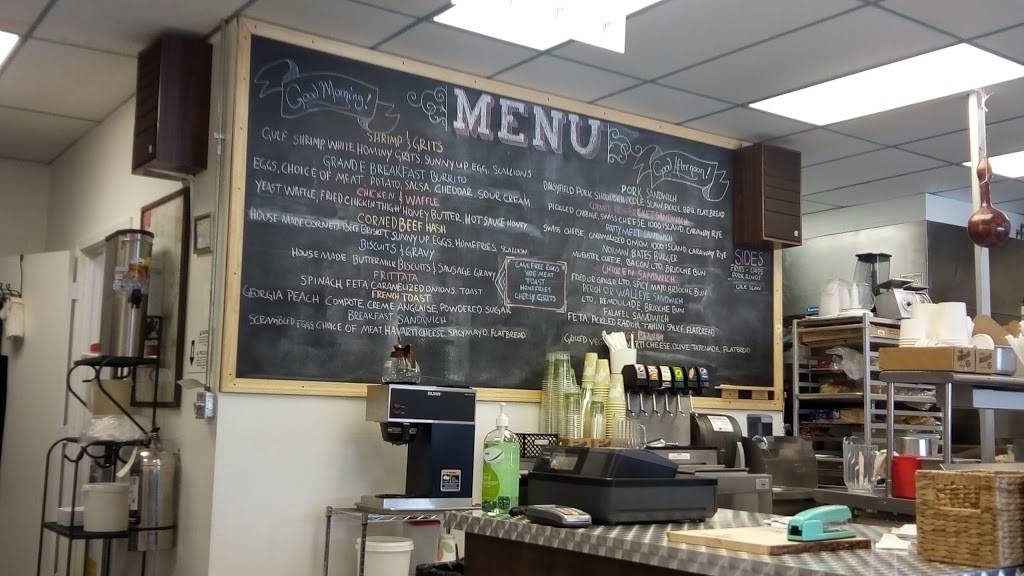 MENU
Good Morning!
SHRIMP & GRITS
GULF SHRIMP WHITE HOMINY GRITS. SUNNY UP EGG, SCALLIONS
GRANDE BREAKFAST BURRITO
EGGS, CHOICE OF MEAT, POTATO, SALSA, CHEDDAR, SOUR CREAM
CHICKEN & WAFFLE
YEAST WAFFLE, FRIED CHICKEN THIGH, HONEY BUTTER, HOT SAUCE HONEY
CORNED BEEF HASH
HOUSE MADE CORNED BEEF BRISKET, SUNNY UP EGGS, HOMEFRIES, SCALLION
BISCUITS & GRAVY
HOUSE MADE BUTTERMILK BISCUITS & SAUSAGE GRAVY
FRITTATA
SPINACH, FETA, CARAMELIZED ONIONS, TOAST
FRENCH TOAST
GEORGIA PEACH COMPOTE, CREME ANGLAISE, POWDERED SUGAR
BREAKFAST SANDWICH
SCRAMBLED EGGS, CHOICE OF MEAT, HAVARTI CHEESE, SPICY MAYO, FLATBREAD
CAGE FREE EGGS
SIDE MEAT
TOAST
HOMEFRIES
CHEESY GRITS
Good Afternoon!
PORK SANDWICH
PORK SHOULDER, BBQ, FLATBREAD
PICKLED CABBAGE, SWISS CHEESE, 1000 ISLAND, CARAWAY RYE
PATTY MELT
SWISS CHEESE, CARAMELIZED ONION, 1000 ISLAND, CARAWAY RYE
BATES BURGER
MUENSTER CHEESE, BACON, LTO, BRIOCHE BUN
CHICKEN SANDWICH
FRIED OR GINGER, LTO, SPICY MAYO, BRIOCHE BUN
PERCH OR WALLEYE SANDWICH
LTO, REMOULADE, BRIOCHE BUN
FALAFEL SANDWICH
FETA, PICKLED RADISH, TAHINI SAUCE, FLATBREAD
CHEESE, OLIVE TAPENADE, FLATBREAD
SIDES
FRIES - CHIPS
BUNN